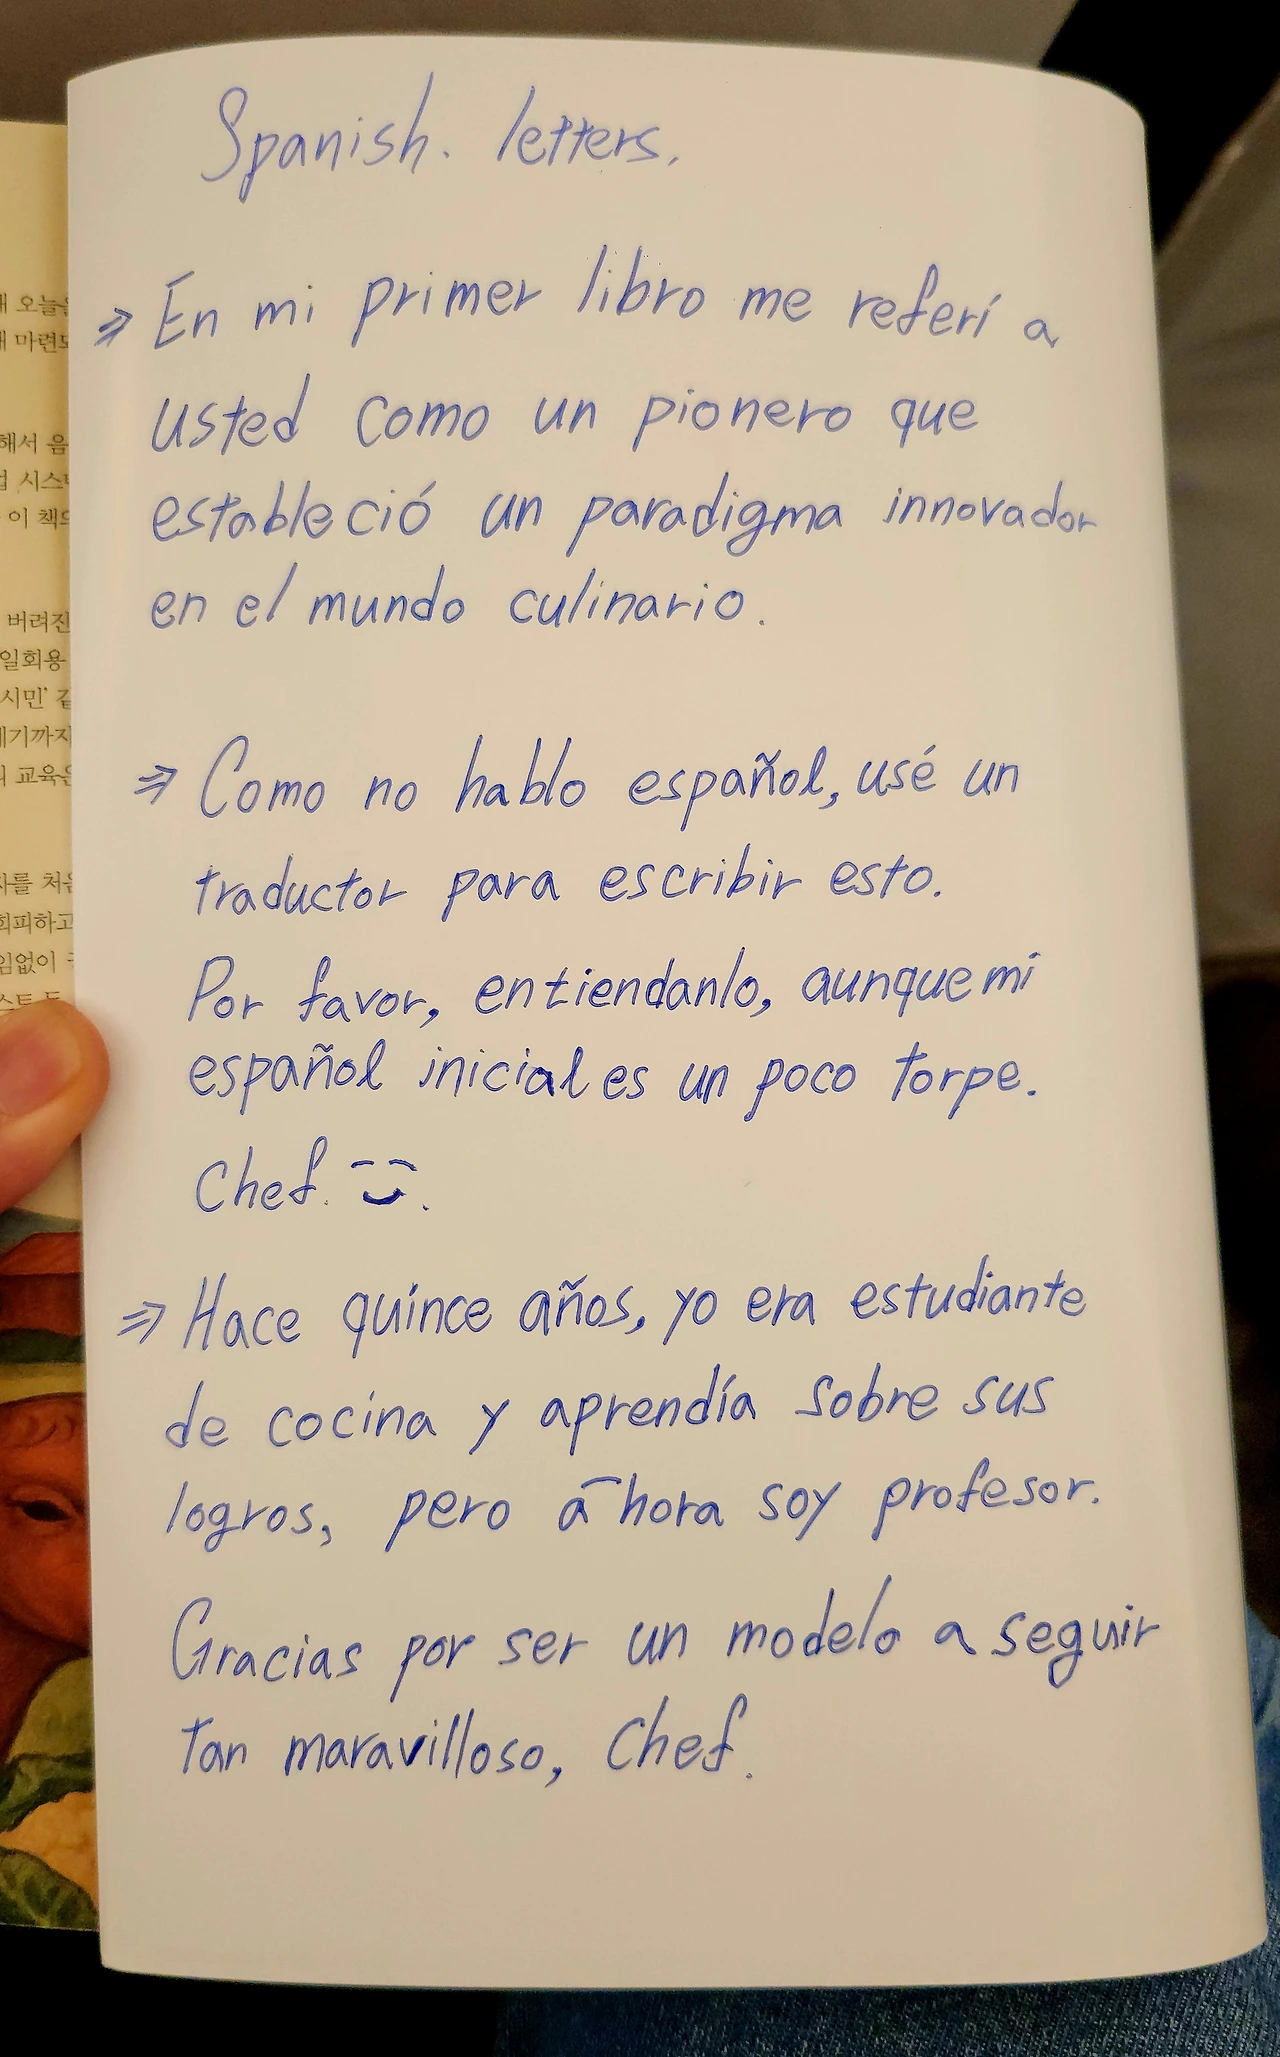 Spanish. letters.
⇒ En mi primer libro me referí a
usted como un pionero que
estableció un paradigma innovador
en el mundo culinario.
⇒ Como no hablo español, usé un
traductor para escribir esto.
Por favor, entiendanlo, aunque mi
español inicial es un poco torpe.
Chef.
⇒ Hace quince años, yo era estudiante
de cocina y aprendía sobre sus
logros, pero ahora soy profesor.
Gracias por ser un modelo a seguir
tan maravilloso, Chef.
오늘
마련도
해서 음
시스
이 책으
버려진
일회용
시민’
기까지
교육은
를 처음
회피하고
임없이